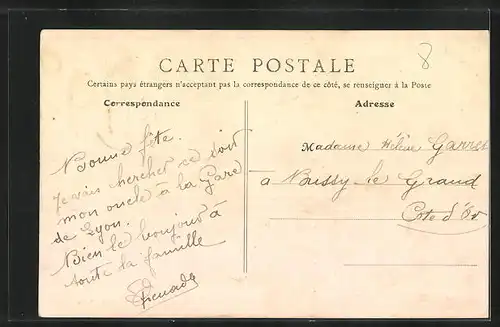 8
CARTE POSTALE
Certains pays étrangers n'acceptant pas la correspondance de ce côté, se renseigner à la Poste
Correspondance
Adresse
Bonne fête.
Je vais chercher ce soir
mon oncle à la Gare
de Lyon.
Bien le bonjour à
toute la famille
Madame Hélène
à Bussy le Grand
Cote d'Or